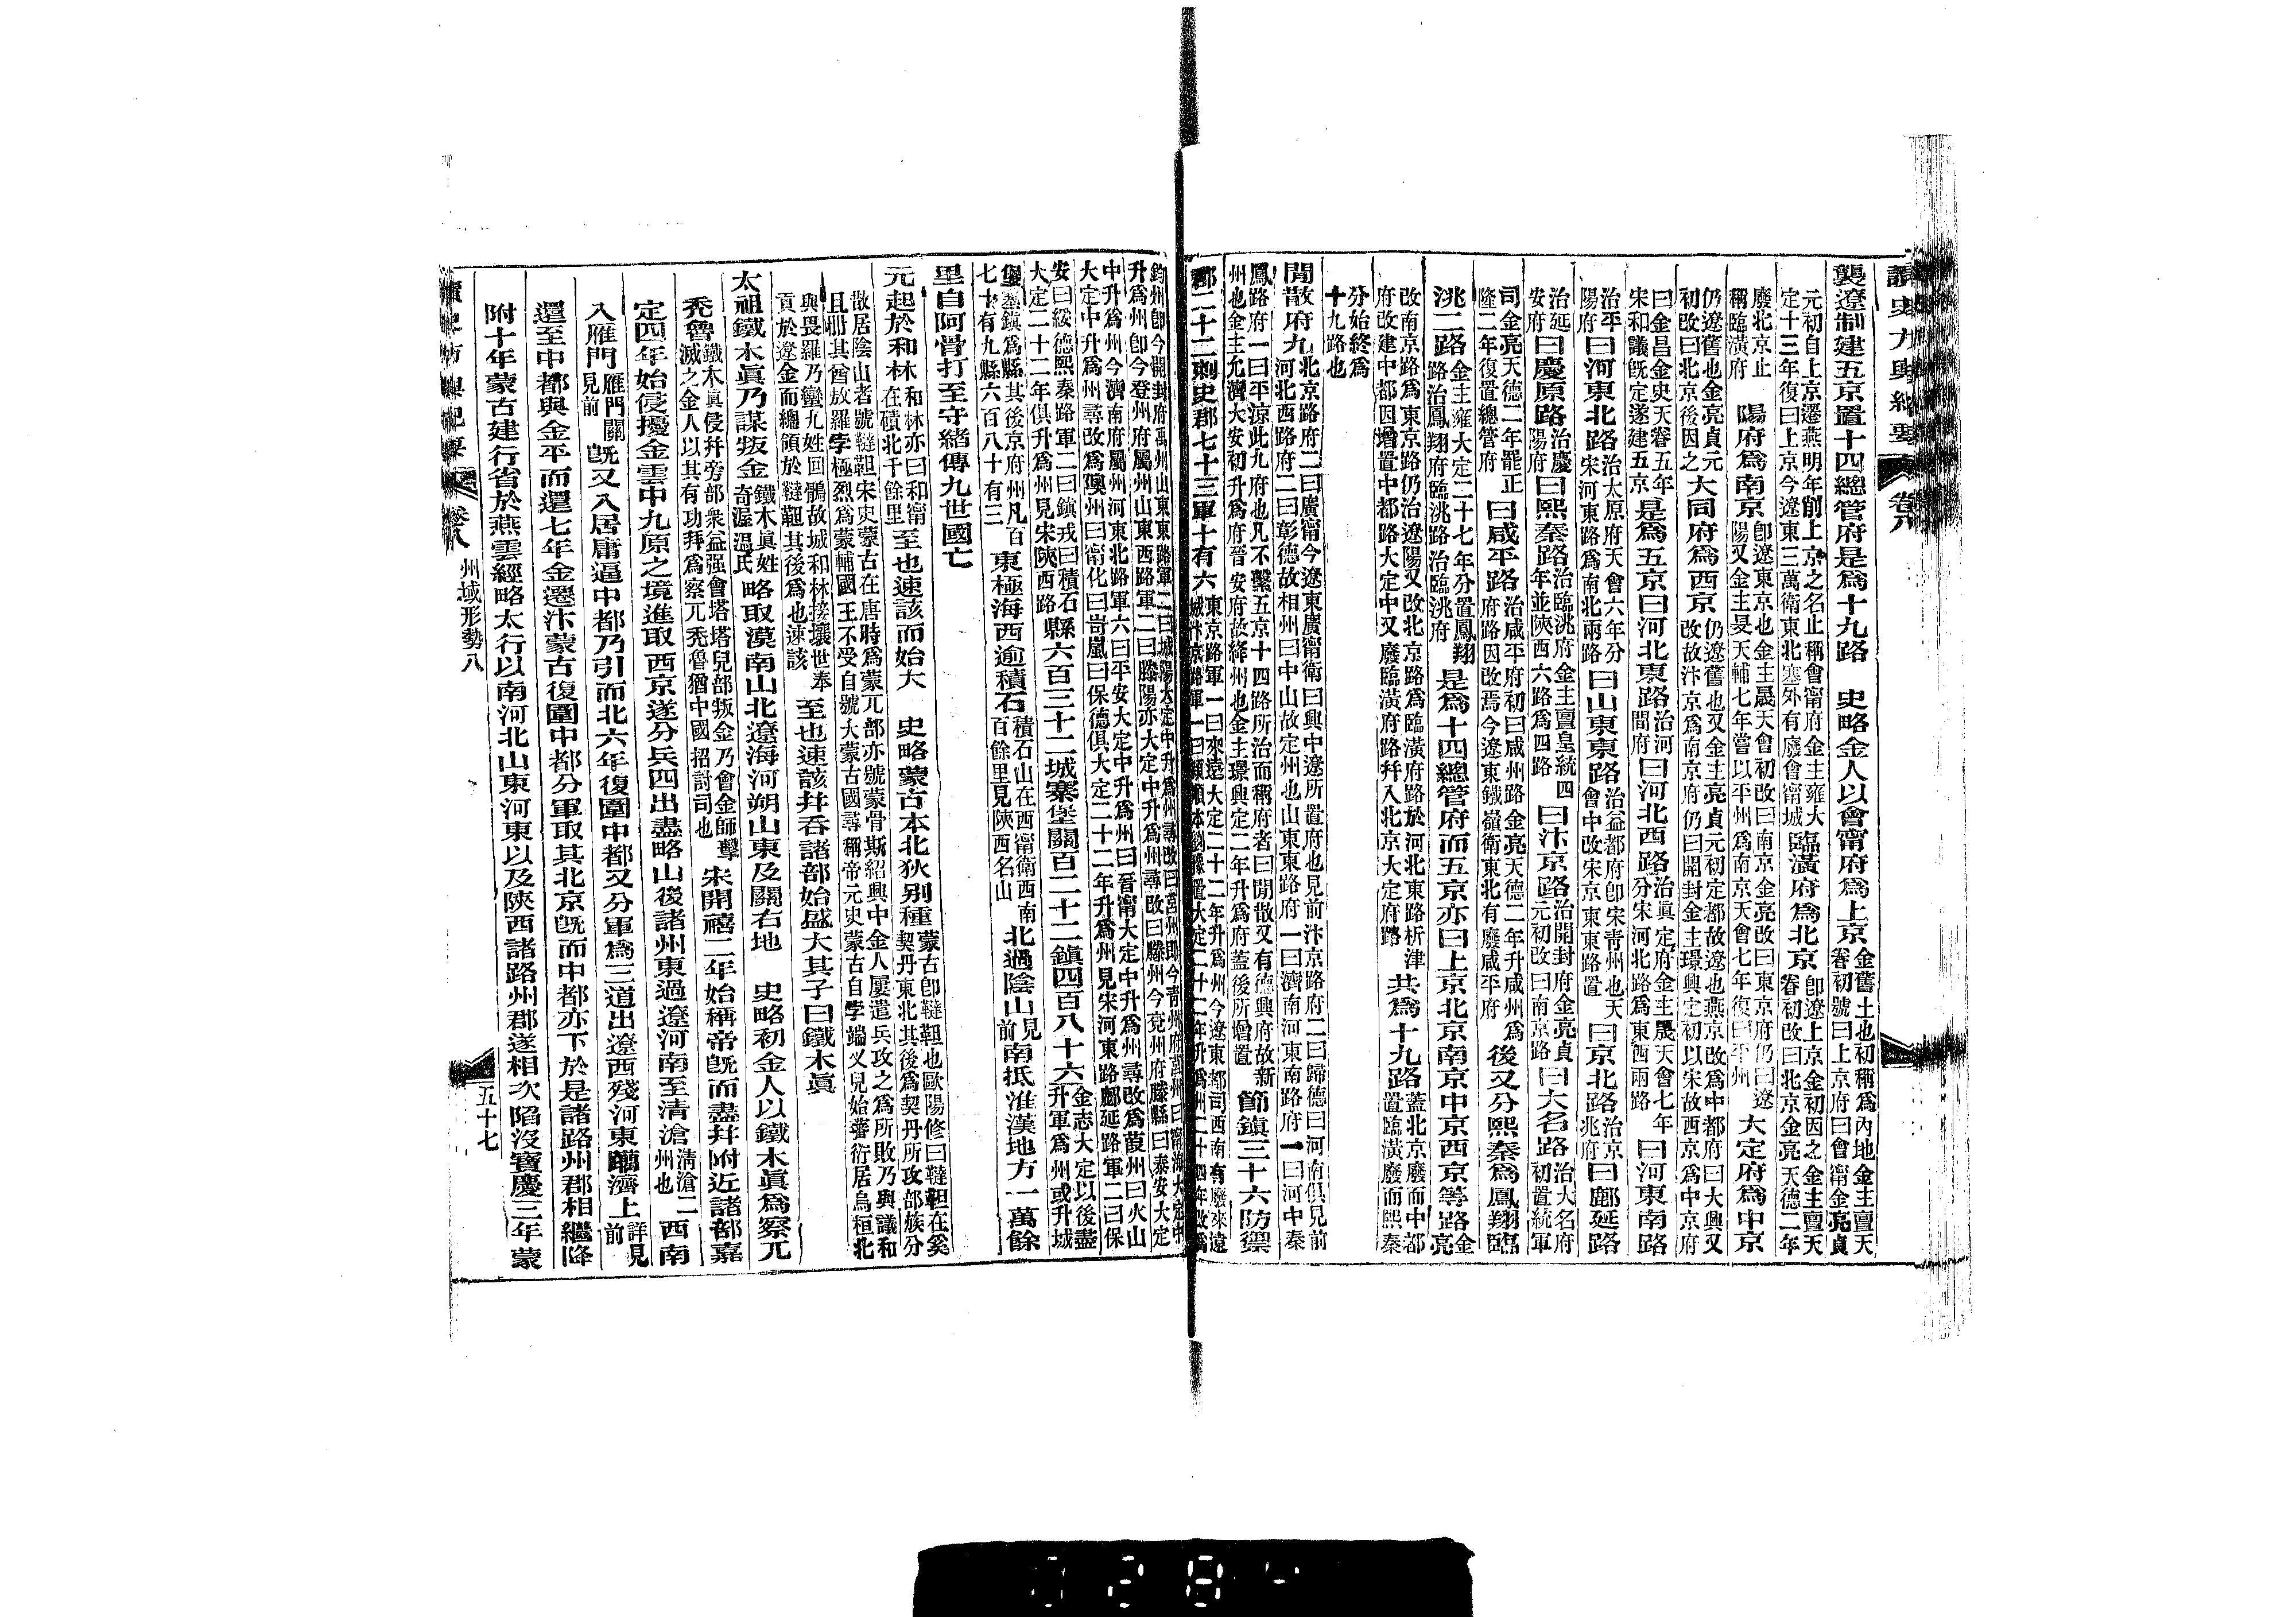 讀史方輿紀要　卷八
襲遼制建五京置十四總管府是爲十九路　史略金人以會甯府爲上京金舊土也初稱爲內地金主亶天眷初號曰上京府曰會甯金亮貞
元初自上京遷燕明年削上京之名止稱會甯府金主雍大定十三年復曰上京今遼東三萬衛東北塞外有廢會甯城臨潢府爲北京卽遼上京金初因之金主亶天眷初改曰北京金亮天德二年
廢北京止稱臨潢府　遼陽府爲南京卽遼東京也金主晟天會初改曰南京金亮改曰東京府仍曰遼陽又金主旻天輔七年嘗以平州爲南京天會七年復曰平州　大定府爲中京
仍遼舊也金亮貞元初改曰北京後因之大同府爲西京仍遼舊也又金主亮貞元初定都故遼也燕京改爲中都府曰大興又改故汴京爲南京府仍曰開封金主璟興定初以宋故西京爲中京府
曰金昌金史天眷五年宋和議旣定遂建五京是爲五京曰河北東路治河間府曰河北西路治眞定府金主晟天會七年分宋河北路爲東西兩路曰河東南路
治平陽府曰河東北路治太原府天會六年分宋河東路爲南北兩路曰山東東路治益都府卽宋靑州也天會中改宋京東東路置曰京北路治京兆府曰鄜延路
治延安府曰慶原路治慶陽府曰熙秦路治臨洮府金主亶皇統四年並陝西六路爲四路曰汴京路治開封府金亮貞元初改曰南京路曰大名路治大名府初置統軍
司金亮天德二年罷正隆二年復置總管府曰咸平路治咸平府初曰咸州路金亮天德二年升咸州爲府路因改焉今遼東鐵嶺衛東北有廢咸平府　後又分熙秦爲鳳翔臨
洮二路金主雍大定二十七年分置鳳翔路治鳳翔府臨洮路治臨洮府是爲十四總管府而五京亦曰上京北京南京中京西京等路金亮
改南京路爲東京路仍治遼陽又改北京路爲臨潢府路於河北東路析津府改建中都因增置中都路大定中又廢臨潢府路幷入北京大定府路共爲十九路蓋北京廢而中都置臨潢廢而熙秦
分始終爲十九路也
閒散府九北京路府二曰廣甯今遼東廣甯衛曰興中遼所置府也見前汴京路府二曰歸德曰河南俱見前河北西路府二曰彰德故相州曰中山故定州也山東東路府一曰濟南河東南路府一曰河中秦
鳳路府一曰平涼此九府也凡不繫五京十四路所治而稱府者曰閒散又有德興府故新州也金主允濟大安初升爲府晉安府故絳州也金主璟興定二年升爲府蓋後所增置　節鎮三十六防禦
郡二十二刺史郡七十三軍十有六東京路軍一曰來遠大定二十二年升爲州今遼東都司西南有廢來遠城
鈞州卽今開封府禹州山東東路軍二曰城陽大定中升爲州尋改曰莒州卽今靑州府莒州曰甯海大定中
升爲州卽今登州府屬州山東西路軍二曰滕陽亦大定中升爲州尋改曰滕州今兗州府滕縣曰泰安大定
中升爲州今濟南府屬州河東北路軍六曰平安大定中升爲州曰晉甯大定中升爲州尋改爲葭州曰火山
大定中升爲州尋改爲隩州曰甯化曰岢嵐曰保德俱大定二十二年升爲州見宋河東路鄜延路軍二曰保
安曰綏德熙秦路軍二曰鎮戎曰積石大定二十二年俱升爲州見宋陝西路縣六百三十二城寨堡關百二十二鎮四百八十六金志大定以後盡升軍爲州或升城
堡塞鎮爲縣其後京府州凡百七十有九縣六百八十有三東極海西逾積石積石山在西甯衛西南百餘里見陝西名山北過陰山見前南抵淮漢地方一萬餘
里自阿骨打至守緒傳九世國亡
元起於和林和林亦曰和甯在磧北千餘里至也速該而始大　史略蒙古本北狄別種蒙古卽韃靼也歐陽修曰韃靼在奚契丹東北其後爲契丹所攻部族分
散居陰山者號韃靼宋史蒙古在唐時爲蒙兀部亦號蒙骨斯紹興中金人屢遣兵攻之爲所敗乃與議和且冊其酋放羅孛極烈爲蒙輔國王不受自號大蒙古國尋稱帝元史蒙古自孛端叉兒始蕃衍居烏桓北
與畏羅乃蠻九姓回鶻故城和林接壤世奉貢於遼金而總領於韃靼其後爲也速該　至也速該幷呑諸部始盛大其子曰鐵木眞
太祖鐵木眞乃謀叛金鐵木眞姓奇渥溫氏略取漠南山北遼海河朔山東及關右地　史略初金人以鐵木眞爲察兀
禿魯鐵木眞侵幷旁部衆益强會塔塔兒部叛金乃會金師擊滅之金人以其有功拜爲察兀禿魯猶中國招討司也宋開禧二年始稱帝旣而盡幷附近諸部嘉
定四年始侵擾金雲中九原之境進取西京遂分兵四出盡略山後諸州東過遼河南至淸滄淸滄二州也西南
入雁門雁門關見前旣又入居庸逼中都乃引而北六年復圍中都又分軍爲三道出遼西殘河東躪濟上詳見前
還至中都與金平而還七年金遷汴蒙古復圍中都分軍取其北京旣而中都亦下於是諸路州郡相繼降
附十年蒙古建行省於燕雲經略太行以南河北山東河東以及陝西諸路州郡遂相次陷沒寶慶三年蒙
讀史方輿紀要　卷八　州域形勢八　五十七